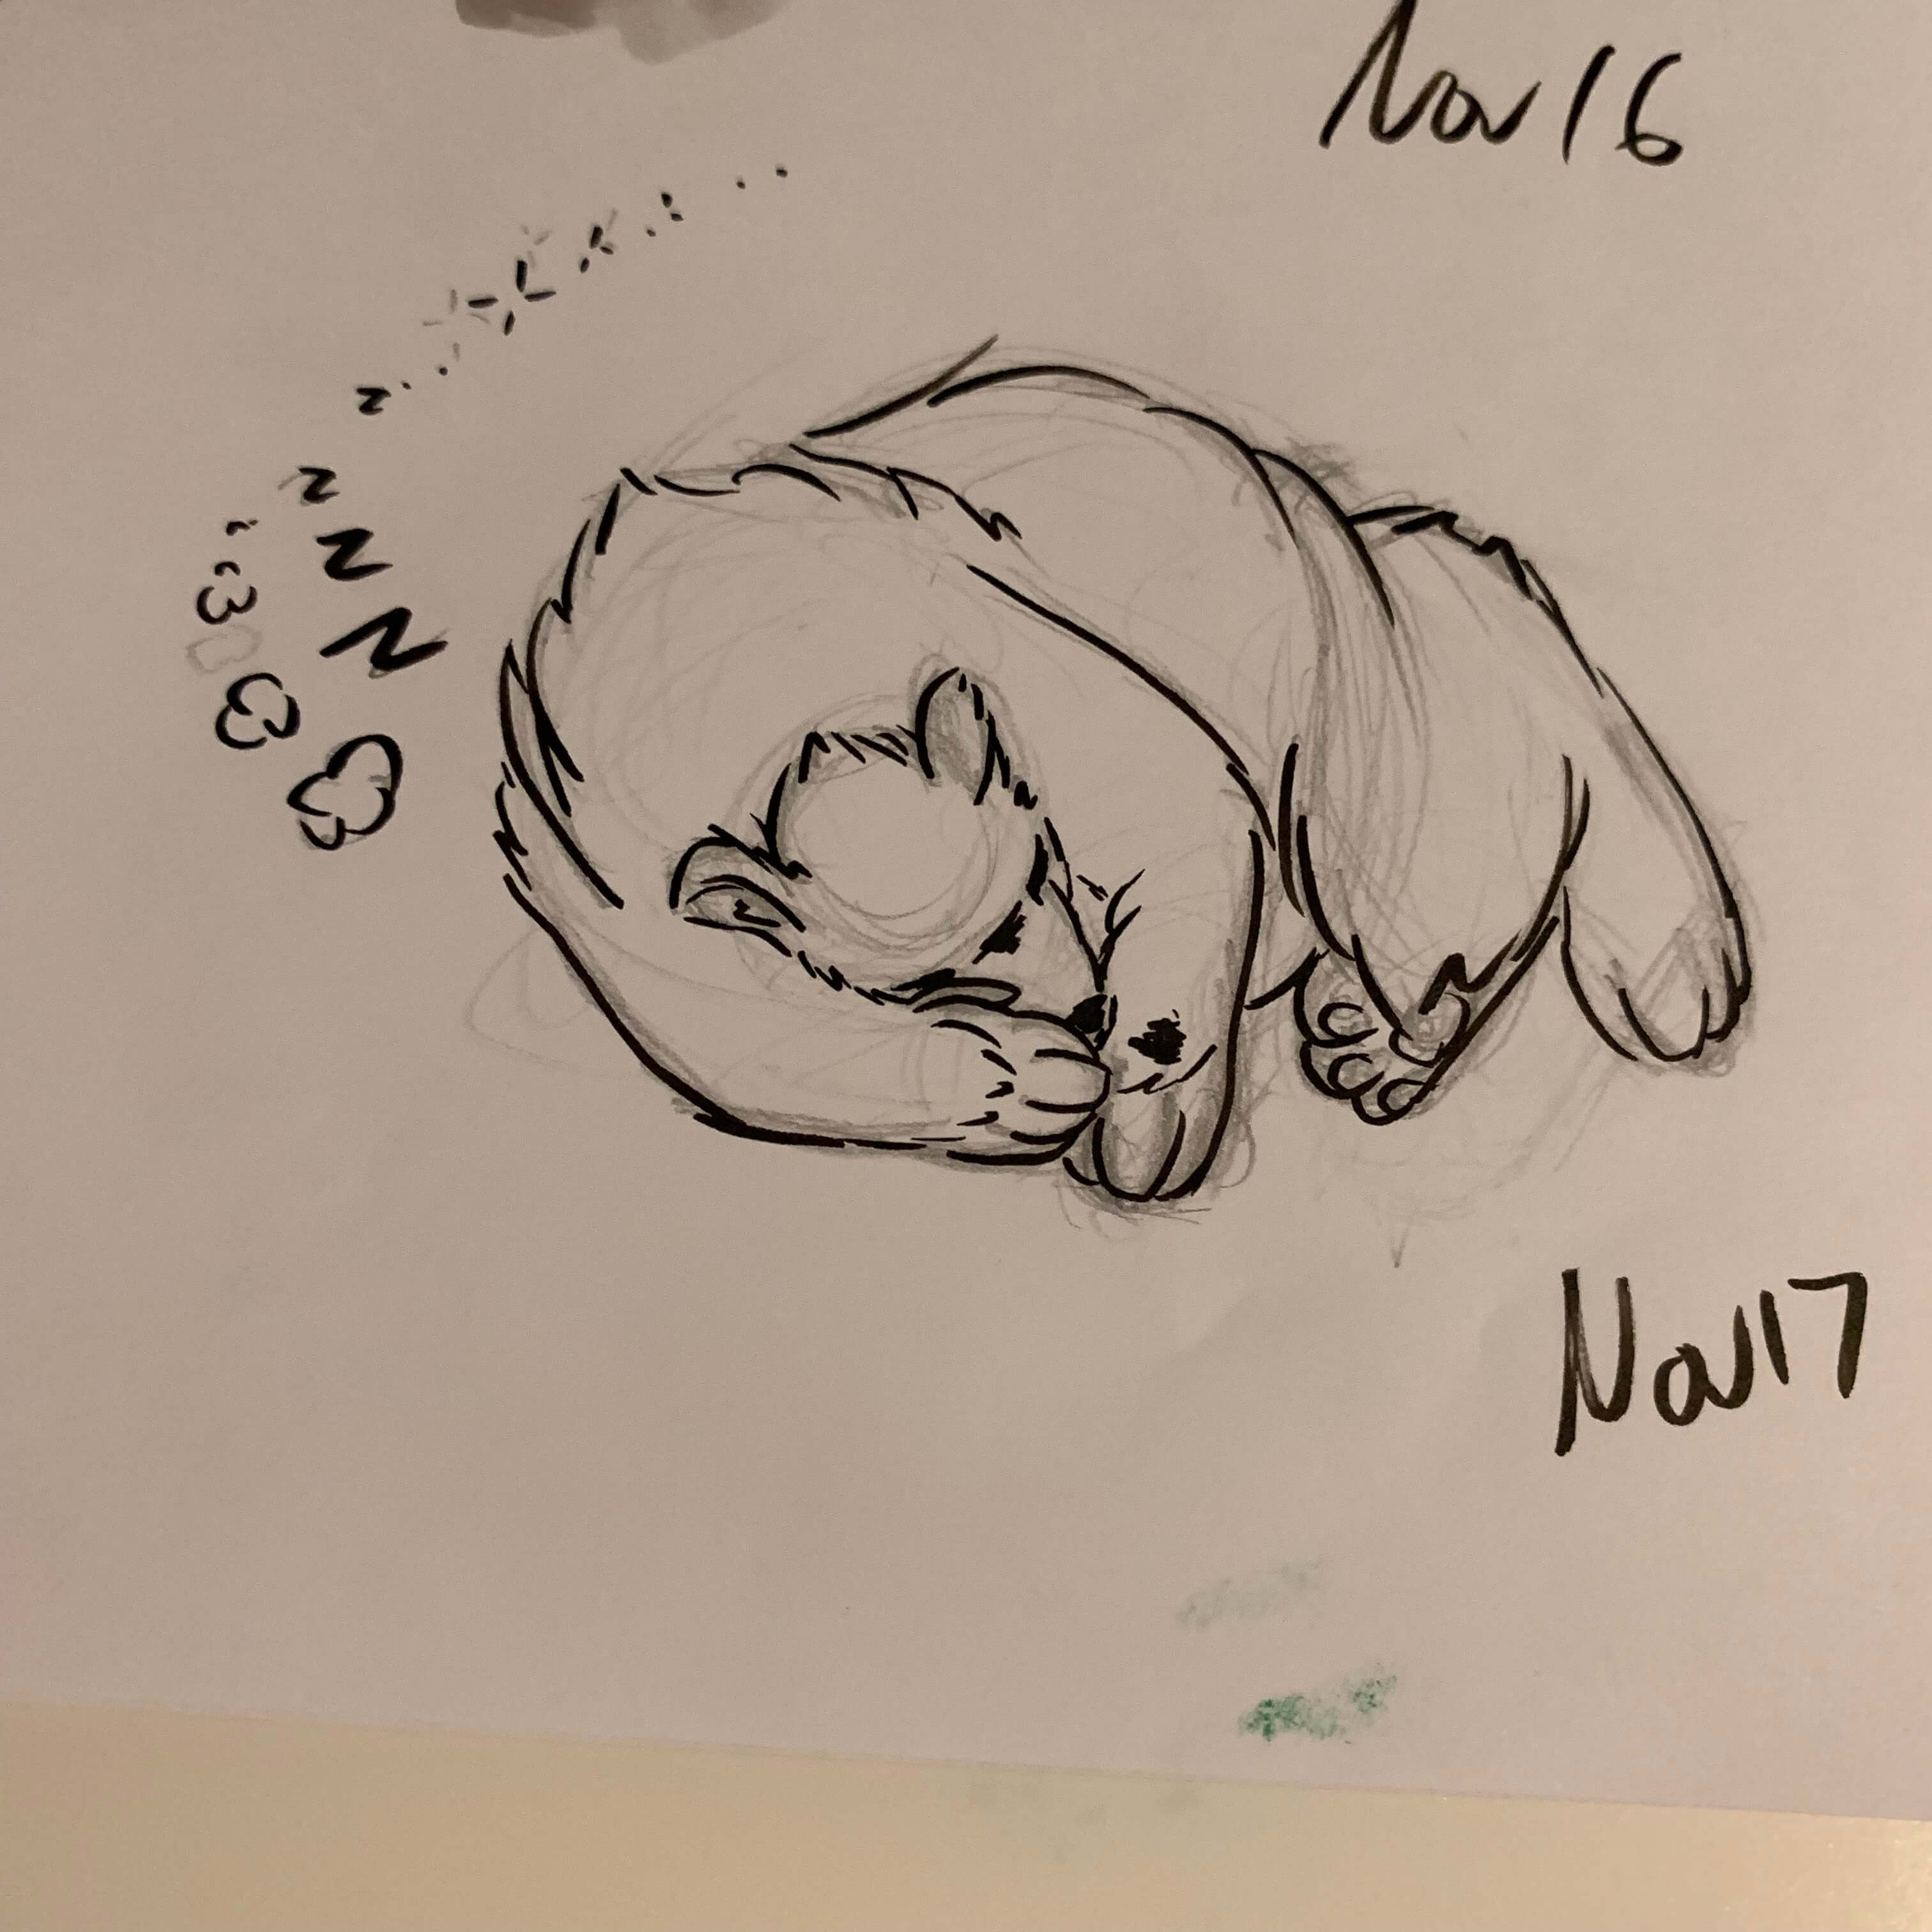 Nov 16
z
z
Z
Z
Nov 17